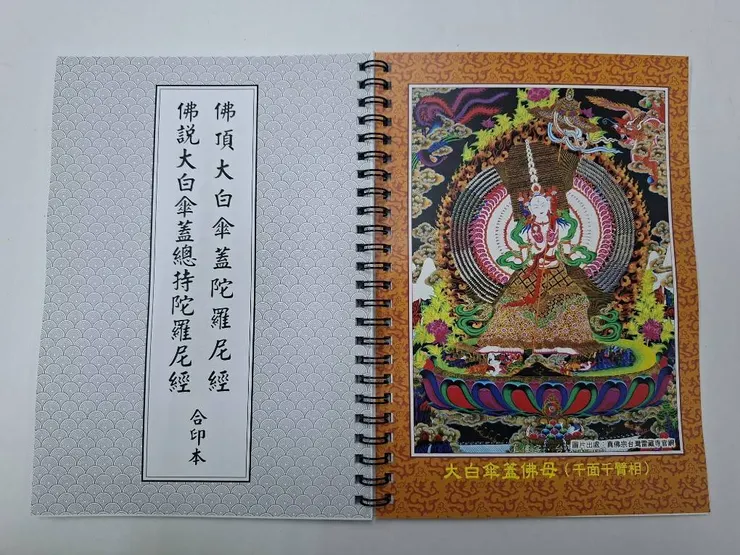 佛頂大白傘蓋陀羅尼經
佛説大白傘蓋總持陀羅尼經
合印本
圖片出處：真佛宗台灣雷藏寺官網
大白傘蓋佛母（千面千臂相）